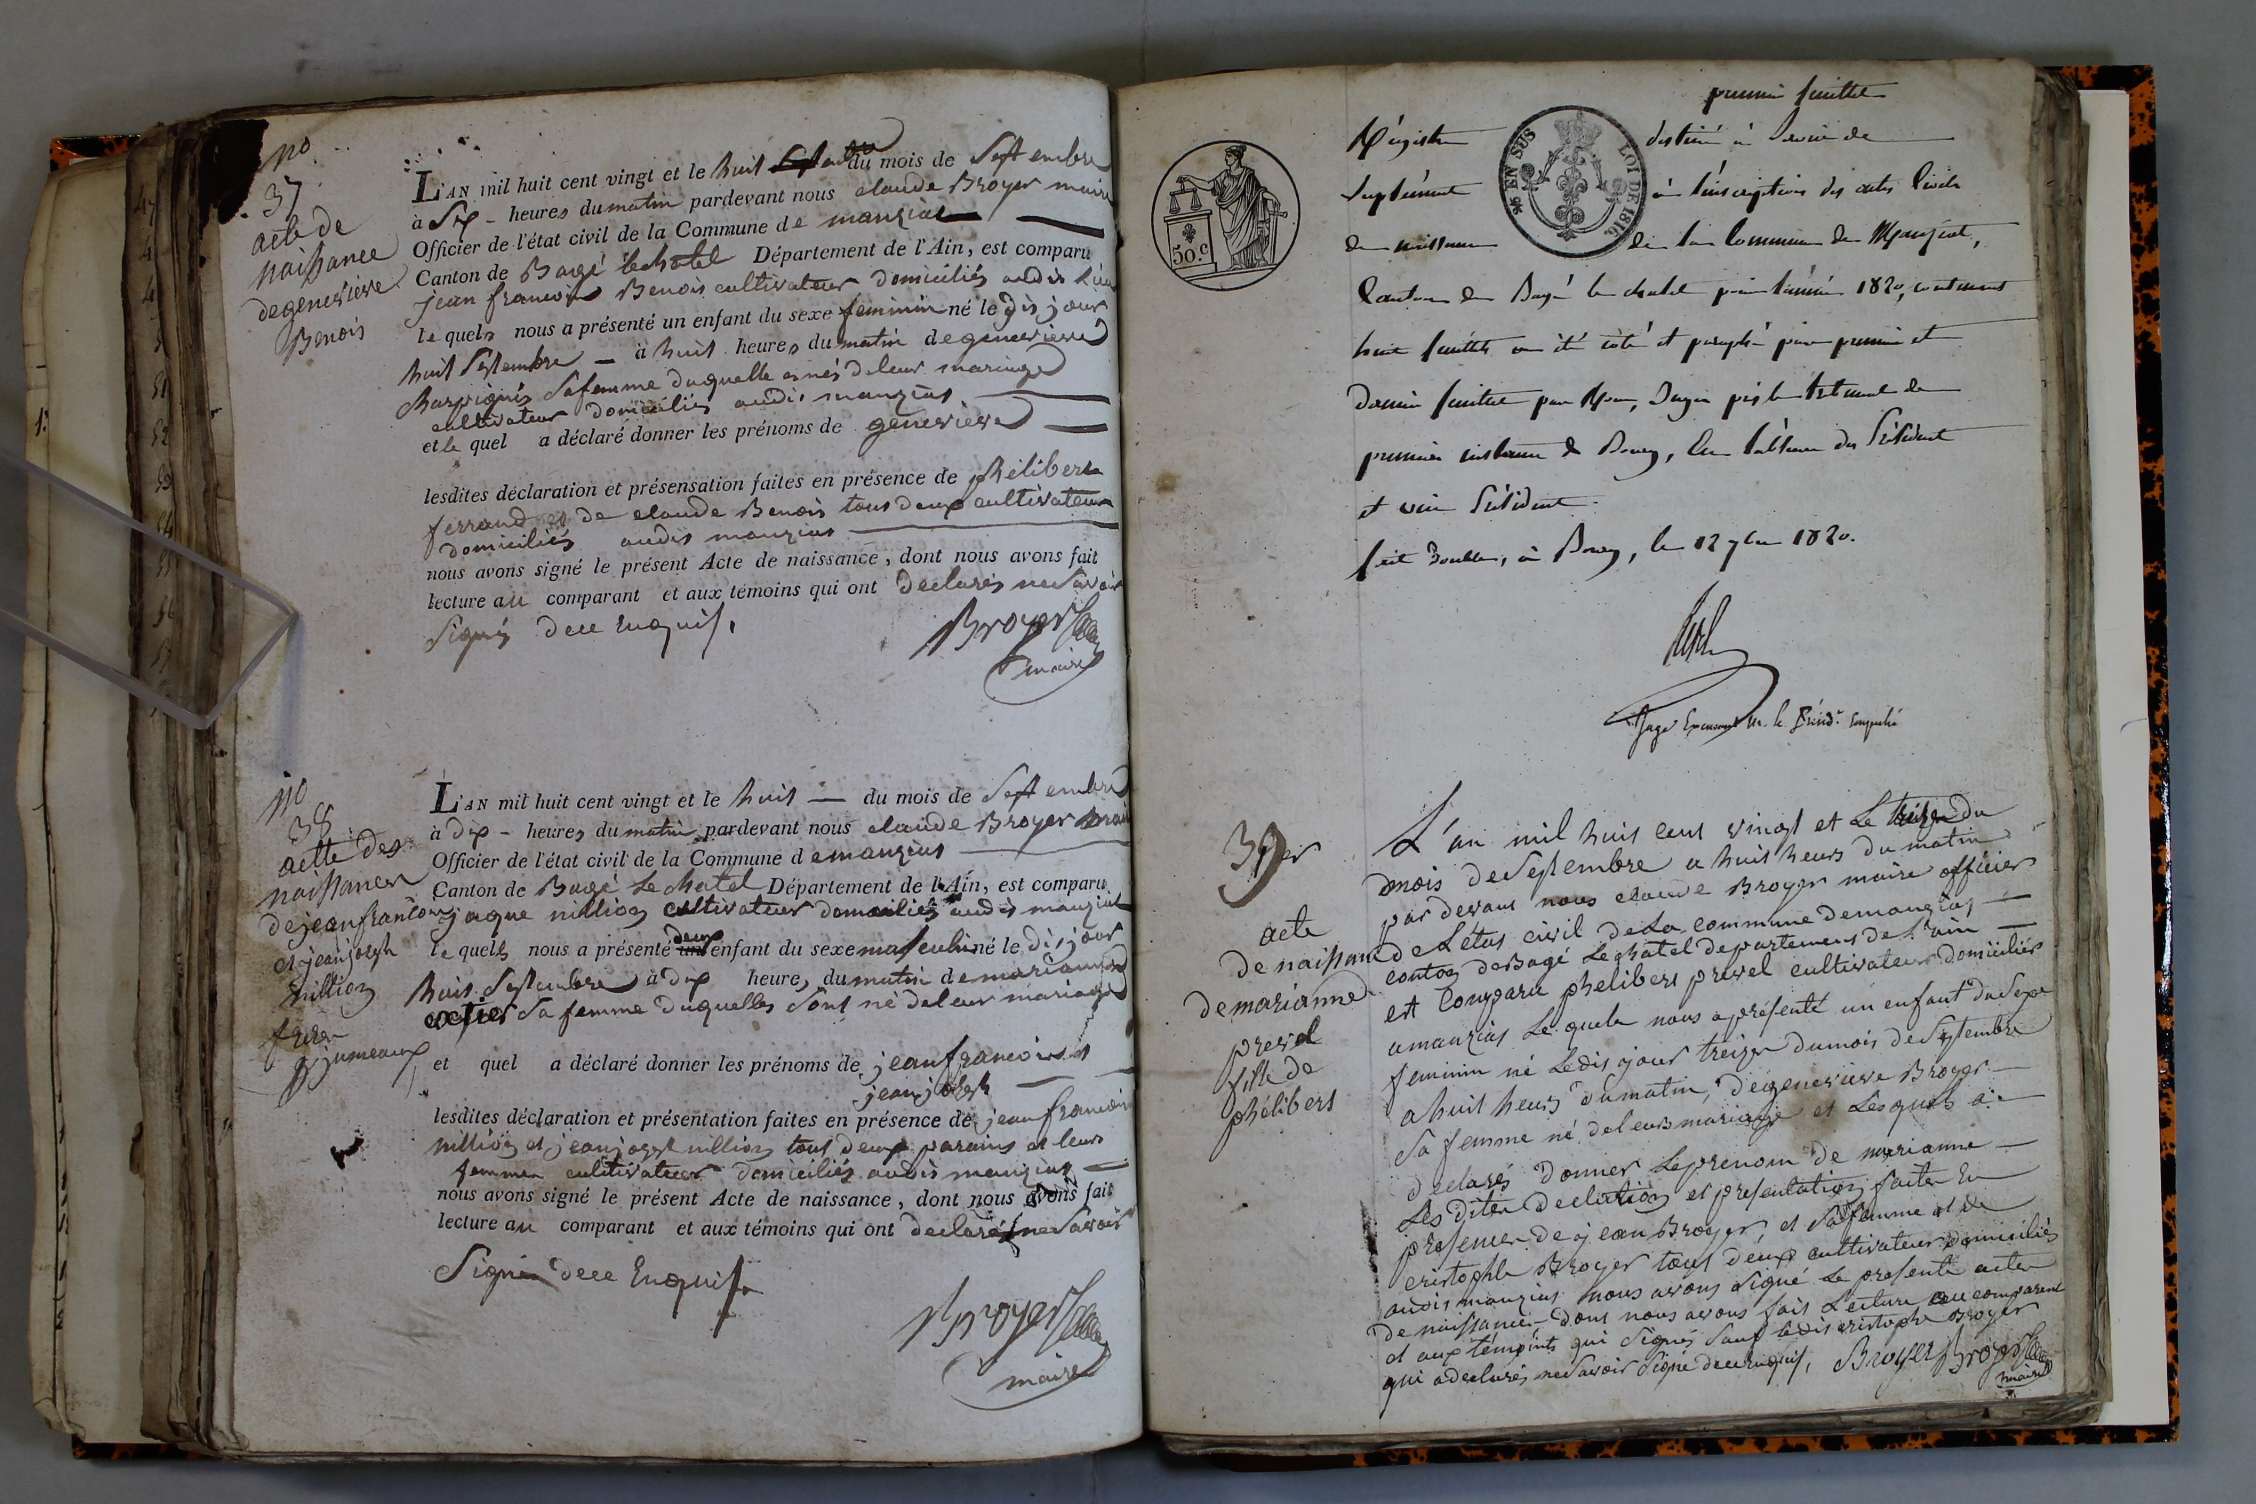 no
37
acte de
naissance
de genevieve
Benois
L'AN mil huit cent vingt et le huit du mois de Septembre
à Six - heures du matin pardevant nous claude Broyer maire
Officier de l'état civil de la Commune de manzias
Canton de Bagé le chatel Département de l'Ain, est comparu
jean francois Benois cultivateur domiciliés audis Lieu
le quels nous a présenté un enfant du sexe feminin né le dis jour
huit Septembre - à huit heures du matin de genevieve
Sa femme duquelle es nés de leur mariage
cultivateur domiciliés audis manzias
et le quel a déclaré donner les prénoms de genevieve
lesdites déclaration et présensation faites en présence de phélibers
ferrand et de claude Benois tous deux cultivateur
domiciliés audis manzias
nous avons signé le présent Acte de naissance, dont nous avons fait
lecture au comparant et aux témoins qui ont declarés ne Savoir
Signés dece Enquis.
Broyer
maire
no
38
actte des
naissances
de jean francois
et jean joseph
nillion
frere
jumeaux
L'AN mil huit cent vingt et le huit - du mois de Septembre
à dix - heures du matin pardevant nous claude Broyer maire
Officier de l'état civil de la Commune d emanzias
Canton de Bagé Le chatel Département de l'Ain, est comparu
jaque nillion cultivateur domiciliés audis manzias
le quels nous a présenté deux enfant du sexe masculin né le dis jour
huis Septembre à dix heures du matin de marianne
Sa femme duquelles Sont né de leur mariage
et quel a déclaré donner les prénoms de jean francois et
jean joseph
lesdites déclaration et présentation faites en présence de jean francois
nillion et jean joseph nillion tous deux parains et leurs
femmes cultivateur domiciliés audis manzias
nous avons signé le présent Acte de naissance, dont nous avons fait
lecture au comparant et aux témoins qui ont declarés ne Savoir
Signés dece Enquis
Broyer
maire
premier feuillet
Régistre destiné à Servir de
Suplément à l'inscription des actes Civils
de naissance de la Commune de Manziat,
Canton de Bagé le chatel pour l'année 1820, contenant
huit feuillets a été coté et paraphé par premier et
dernier feuillet par Nous, Juge près le tribunal de
premiere instance de Bourg, Président
et vice Président
fait double, à Bourg, le 12 7bre 1820.
50 c
25 EN SUS
LOI DE 1816.
Juge M. le Présid.t empeché
39
acte
de naissance
de marianne
prevel
fille de
phélibers
L'an mil huis cens vingt et Le treize du
mois de Septembre a huis heurs du matin
par devans nous claude Broyer maire officier
de Létas civil de La commune de manzias
conton de Bagé Le chatel departemens de L'ain
est comparu phelibers prevel cultivateur domiciliés
a manzias Le quele nous a présenté un enfant du Sexe
feminin né Ledis jour treize du mois de Septembre
a huis heurs du matin, de genevieve Broyer
Sa femme né de leurs mariage et Lesquels a
declarés donner Le prenom de marianne
Les dites declartion et presentation faites En
presence de jean Broyer, et Sa femme et de
cristophle Broyer tous deux cultivateur domiciliés
audis manzias nous avons signé Le presente actes
de naissance dont nous avons fais Lecture au comparent
et aux témoints qui Signés Sauf ledis cristophe Broyer
qui a declarés ne Savoir Signé dece Enquis, Broyer Broyer
maire